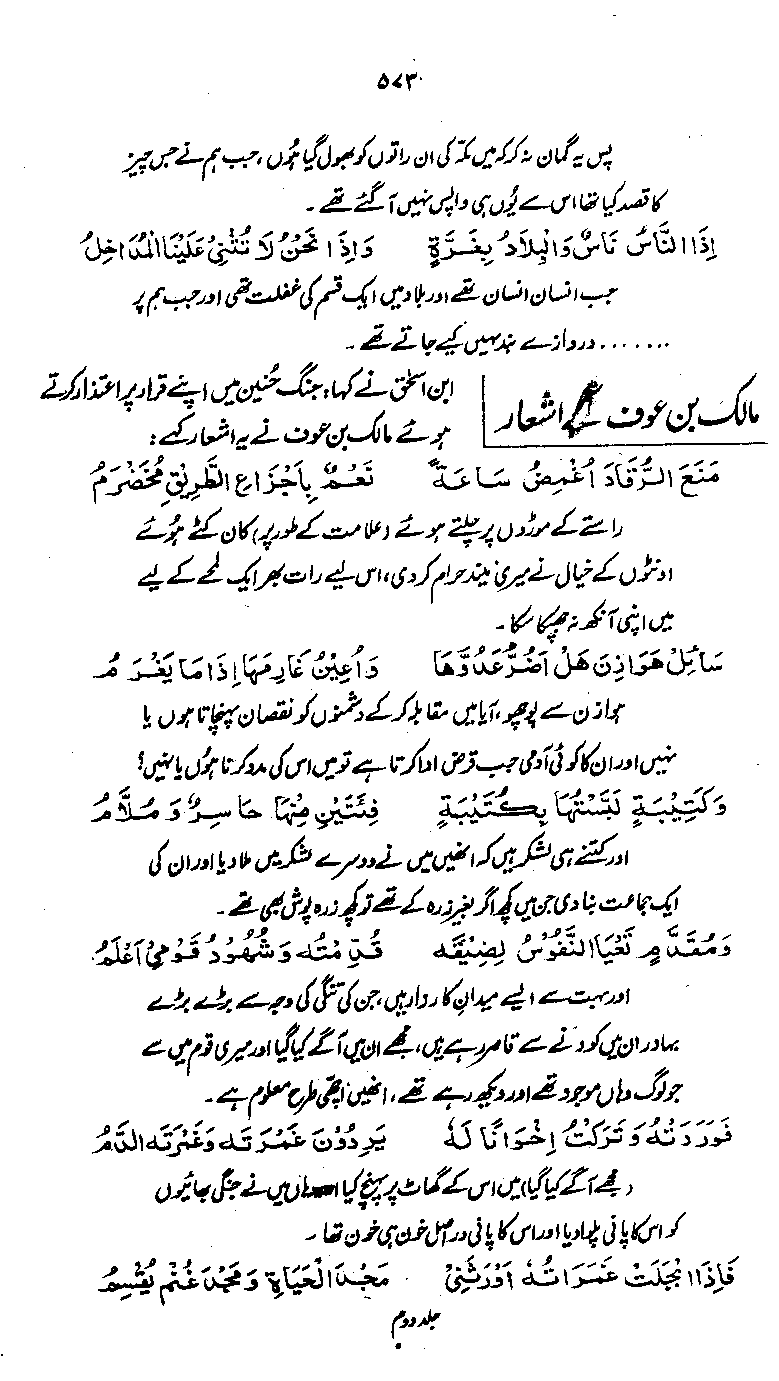 ۵۷۳
پس یہ گمان نہ کر کہ میں مکہ کی ان راتوں کو بھول گیا ہوں، جب ہم نے جس چیز
کا قصد کیا تھا اس سے یُوں ہی واپس نہیں آ گئے تھے ۔
اِذَا النَّاسُ نَاسٌ وَالْبِلَادُ بِغَرَّةٍ وَاِذَا نَحْنُ لَا تُثْنٰی عَلَيْنَا الْمَدَاخِلُ
جب انسان انسان تھے اور بلاد میں ایک قسم کی غفلت تھی اور جب ہم پر
....... دروازے بند نہیں کیے جاتے تھے ۔
مالک بن عوف کے اشعار
ابن اسحٰق نے کہا: جنگ حُنین میں اپنے فرار پر اعتذار کرتے
ہوئے مالک بن عوف نے یہ اشعار کہے:
مَنَعَ الرُّقَادَ اُغْمِضُ سَاعَةً نَعَمٌ بِاَجْزَاعِ الطَّرِيْقِ مُخَضْرَمُ
راستے کے موڑوں پر چلتے ہوئے (علامت کے طور پر) کان کٹے ہوُئے
اونٹوں کے خیال نے میری نیند حرام کر دی، اس لیے رات بھر ایک لمحے کے لیے
میں اپنی آنکھ نہ جھپکا سکا ۔
سَائِلْ هَوَازِنَ هَلْ اَضُرُّ عَدُوَّهَا وَاُعِيْنُ غَارِمَهَا اِذَا مَا يَغْرَمُ
ہوازن سے پوچھو، آیا میں مقابلہ کر کے دشمنوں کو نقصان پہنچاتا ہوں یا
نہیں اور ان کا کوئی آدمی جب قرض ادا کرتا ہے تو میں اس کی مدد کرتا ہوُں یا نہیں؟
وَكَتِيْبَةٍ لَبَّسْتُهَا بِكَتِيْبَةٍ فِئَتَيْنِ مِنْهَا حَاسِرٌ وَمُلَأَّمُ
اور کتنے ہی لشکر ہیں کہ انھیں میں نے دوسرے لشکر میں ملا دیا اور ان کی
ایک جماعت بنا دی جن میں کچھ اگر بغیر زرہ کے تھے تو کچھ زرہ پوش بھی تھے ۔
وَمُقَدَّمٍ تَعْيَا النُّفُوْسُ لِضِيْقِهٖ قُدِّمْتُهٗ وَشُهُوْدُ قَوْمِیْ اَعْلَمُ
اور بہت سے ایسے میدانِ کارزار ہیں، جن کی تنگی کی وجہ سے بڑے بڑے
بہادر ان میں کودنے سے قاصر رہے ہیں، مجھے ان میں آگے کیا گیا اور میری قوم میں سے
جو لوگ وہاں موجود تھے اور دیکھ رہے تھے، انھیں اچھی طرح معلوم ہے ۔
فَوَرَدْتُهٗ وَتَرَكْتُ اِخْوَانًا لَهٗ يَرِدُوْنَ غَمْرَتَهٗ وَغَمْرَتُهُ الدَّمُ
(مجھے آگے کیا گیا) میں اس کے گھاٹ پر پہنچ گیا میں نے جنگی بھائیوں
کو اس کا پانی پلا دیا اور اس کا پانی دراصل خون ہی خون تھا ۔
فَاِذَا انْجَلَتْ غَمَرَاتُهٗ اَوْرَثْنَنِیْ مَجْدَ الْحَيَاةِ وَمَجْدَ غُنْمٍ يُقْسَمُ
جلد دوم